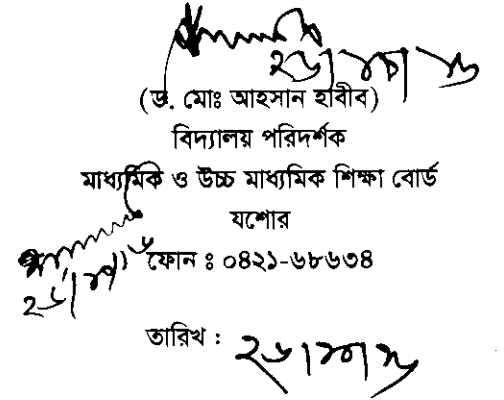 (ড. মোঃ আহসান হাবীব)
বিদ্যালয় পরিদর্শক
মাধ্যমিক ও উচ্চ মাধ্যমিক শিক্ষা বোর্ড
যশোর
ফোন ঃ ০৪২১-৬৮৬৩৪
তারিখ :